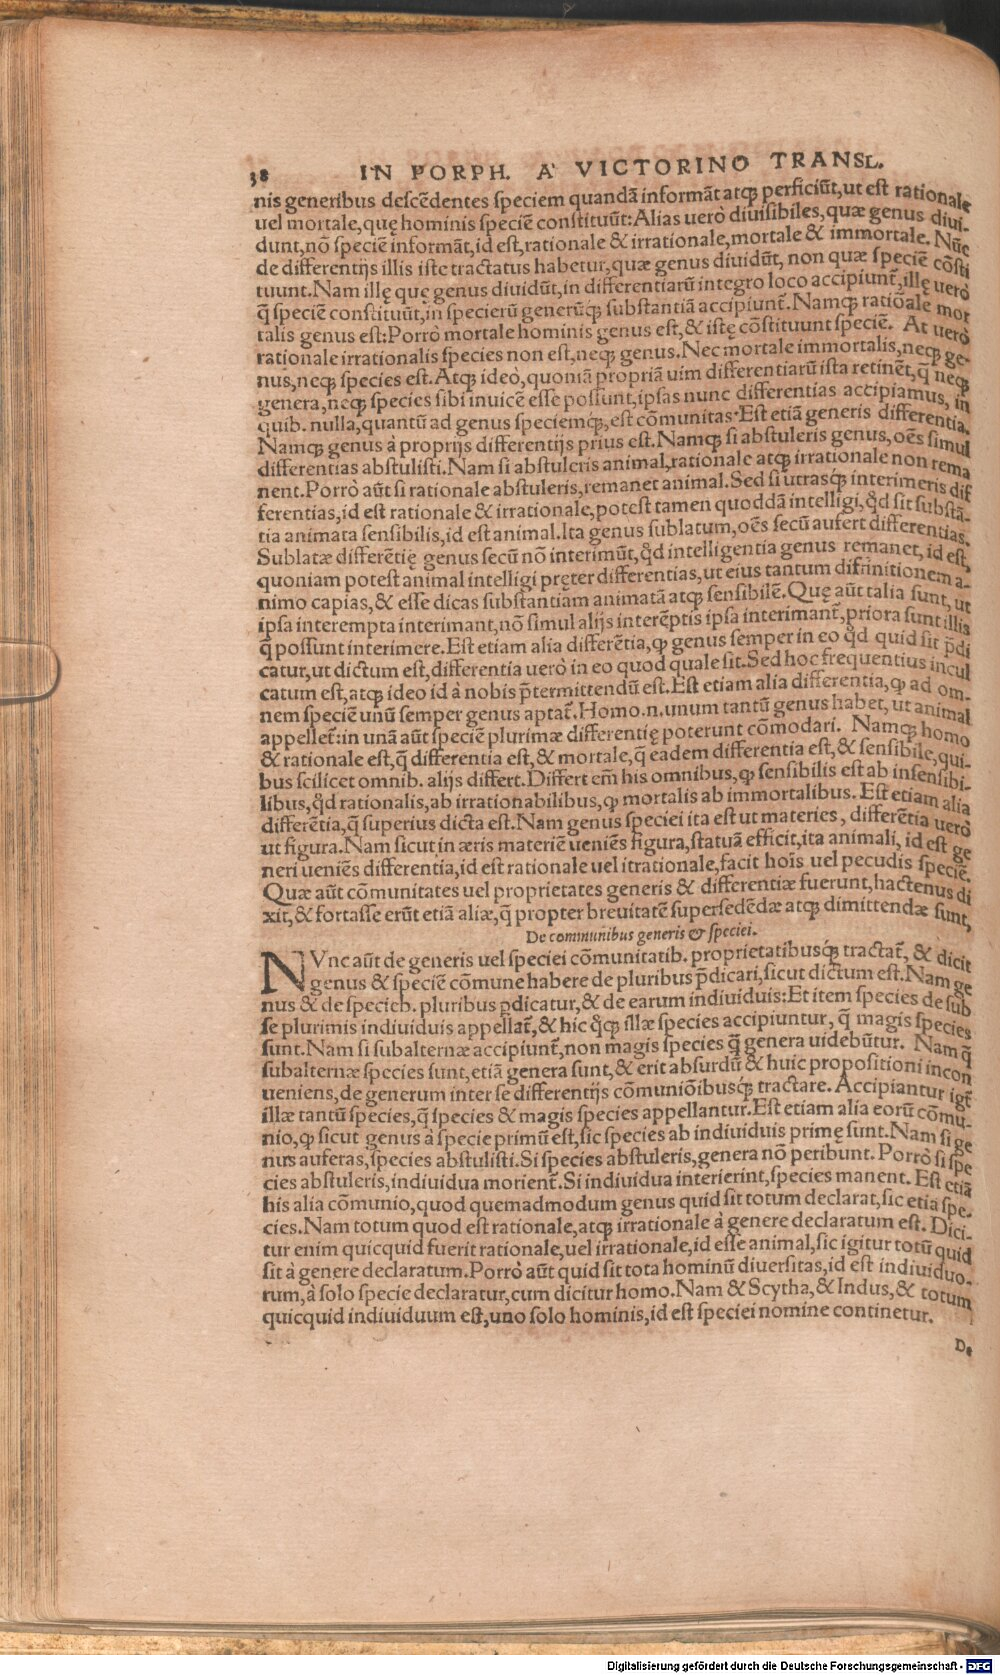 38 IN PORPH. A' VICTORINO TRANSL.
nis generibus descẽdentes speciem quandã informãt atqꝫ perficiũt, ut est rationale
uel mortale, quę hominis speciẽ constituũt: Alias uerò diuisibiles, quæ genus diui-
dunt, nõ speciẽ informãt, id est, rationale & irrationale, mortale & immortale. Nũc
de differentijs illis iste tractatus habetur, quæ genus diuidũt, non quæ speciẽ cõsti
tuunt. Nam illę quę genus diuidũt, in differentiarũ integro loco accipiunt̃, illę uerò
q̃ speciẽ constituũt, in specierũ generũqꝫ substantiã accipiunt̃. Namqꝫ rationale mor
talis genus est: Porrò mortale hominis genus est, & istę cõstituunt speciẽ. At uerò
rationale irrationalis species non est, neqꝫ genus. Nec mortale immortalis, neqꝫ ge-
nus, neqꝫ species est. Atqꝫ ideò, quoniã propriã uim differentiarũ ista retinẽt, q̃ neqꝫ
genera, neqꝫ species sibi inuicẽ esse possunt, ipsas nunc differentias accipiamus, in
quib. nulla, quantũ ad genus speciemqꝫ, est cõmunitas. Est etiã generis differentia.
Namqꝫ genus à proprijs differentijs prius est. Namqꝫ si abstuleris genus, oẽs simul
differentias abstulisti. Nam si abstuleris animal, rationale atqꝫ irrationale non rema
nent. Porrò aũt si rationale abstuleris, remanet animal. Sed si utrasqꝫ interimeris dif
ferentias, id est rationale & irrationale, potest tamen quoddã intelligi, qd̃ sit substã-
tia animata sensibilis, id est animal. Ita genus sublatum, oẽs secũ aufert differentias.
Sublatæ differẽtię genus secũ nõ interimũt, qd̃ intelligentia genus remanet, id est,
quoniam potest animal intelligi pręter differentias, ut eius tantum diffinitionem a-
nimo capias, & esse dicas substantiam animatã atqꝫ sensibilẽ. Quę aũt talia sunt, ut
ipsa interempta interimant, nõ simul alijs interẽptis ipsa interimant̃, priora sunt illis
q̃ possunt interimere. Est etiam alia differẽtia, ꝙ genus semper in eo qd̃ quid sit p̃di
catur, ut dictum est, differentia uerò in eo quod quale sit. Sed hoc frequentius incul
catum est, atqꝫ ideo id à nobis p̃termittendũ est. Est etiam alia differentia, ꝙ ad om-
nem speciẽ unũ semper genus aptat̃. Homo .n. unum tantũ genus habet, ut animal
appellet̃: in unã aũt speciẽ plurimæ differentię poterunt cõmodari. Namqꝫ homo
& rationale est, q̃ differentia est, & mortale, q̃ eadem differentia est, & sensibile, qui-
bus scilicet omnib. alijs differt. Differt em̃ his omnibus, ꝙ sensibilis est ab insensibi-
libus, qd̃ rationalis, ab irrationabilibus, ꝙ mortalis ab immortalibus. Est etiam alia
differẽtia, q̃ superius dicta est. Nam genus speciei ita est ut materies, differẽtia uerò
ut figura. Nam sicut in æris materiẽ ueniẽs figura, statuã efficit, ita animali, id est ge
neri ueniẽs differentia, id est rationale uel itrationale, facit hoĩs uel pecudis speciẽ.
Quæ aũt cõmunitates uel proprietates generis & differentiæ fuerunt, hactenus di
xit, & fortasse erũt etiã aliæ, q̃ propter breuitatẽ supersedẽdæ atqꝫ dimittendæ sunt,
De communibus generis & speciei.
NVnc aũt de generis uel speciei cõmunitatib. proprietatibusqꝫ tractat̃, & dicit
genus & speciẽ cõmune habere de pluribus p̃dicari, sicut dictum est. Nam ge
nus & de specieb. pluribus p̃dicatur, & de earum indiuiduis: Et item species de sub
se plurimis indiuiduis appellat̃, & hic qc̃qꝫ illæ species accipiuntur, q̃ magis species
sunt. Nam si subalternæ accipiunt̃, non magis species q̃ genera uidebũtur. Nam q̃
subalternæ species sunt, etiã genera sunt, & erit absurdũ & huic propositioni incon
ueniens, de generum inter se differentijs cõmuniõibusqꝫ tractare. Accipiantur igt̃
illæ tantũ species, q̃ species & magis species appellantur. Est etiam alia eorũ cõmu-
nio, ꝙ sicut genus à specie primũ est, sic species ab indiuiduis primę sunt. Nam si ge
nus auferas, species abstulisti. Si species abstuleris, genera nõ peribunt. Porrò si spe
cies abstuleris, indiuidua morient̃. Si indiuidua interierint, species manent. Est etiã
his alia cõmunio, quod quemadmodum genus quid sit totum declarat, sic etiã spe-
cies. Nam totum quod est rationale, atqꝫ irrationale à genere declaratum est. Dici-
tur enim quicquid fuerit rationale, uel irrationale, id esse animal, sic igitur totũ quid
sit à genere declaratum. Porrò aũt quid sit tota hominũ diuersitas, id est indiuiduo-
rum, à solo specie declaratur, cum dicitur homo. Nam & Scytha, & Indus, & totum
quicquid indiuiduum est, uno solo hominis, id est speciei nomine continetur.
De
Digitalisierung gefördert durch die Deutsche Forschungsgemeinschaft - DFG